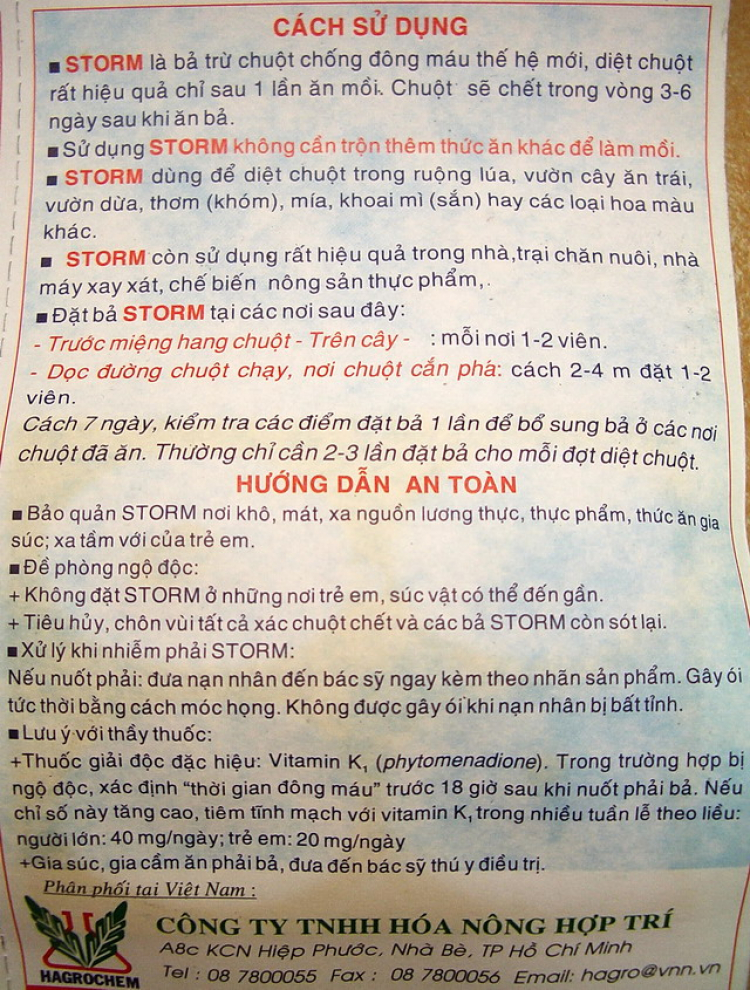 CÁCH SỬ DỤNG
■ STORM là bả trừ chuột chống đông máu thế hệ mới, diệt chuột
rất hiệu quả chỉ sau 1 lần ăn mồi. Chuột sẽ chết trong vòng 3-6
ngày sau khi ăn bả.
■ Sử dụng STORM không cần trộn thêm thức ăn khác để làm mồi.
■ STORM dùng để diệt chuột trong ruộng lúa, vườn cây ăn trái,
vườn dừa, thơm (khóm), mía, khoai mì (sắn) hay các loại hoa màu
khác.
■ STORM còn sử dụng rất hiệu quả trong nhà,trại chăn nuôi, nhà
máy xay xát, chế biến nông sản thực phẩm,.
■ Đặt bả STORM tại các nơi sau đây:
- Trước miệng hang chuột - Trên cây - : mỗi nơi 1-2 viên.
- Dọc đường chuột chạy, nơi chuột cắn phá: cách 2-4 m đặt 1-2
viên.
Cách 7 ngày, kiểm tra các điểm đặt bả 1 lần để bổ sung bả ở các nơi
chuột đã ăn. Thường chỉ cần 2-3 lần đặt bả cho mỗi đợt diệt chuột.
HƯỚNG DẪN AN TOÀN
■ Bảo quản STORM nơi khô, mát, xa nguồn lương thực, thực phẩm, thức ăn gia
súc; xa tầm với của trẻ em.
■ Đề phòng ngộ độc:
+ Không đặt STORM ở những nơi trẻ em, súc vật có thể đến gần.
+ Tiêu hủy, chôn vùi tất cả xác chuột chết và các bả STORM còn sót lại.
■ Xử lý khi nhiễm phải STORM:
Nếu nuốt phải: đưa nạn nhân đến bác sỹ ngay kèm theo nhãn sản phẩm. Gây ói
tức thời bằng cách móc họng. Không được gây ói khi nạn nhân bị bất tỉnh.
■ Lưu ý với thầy thuốc:
+Thuốc giải độc đặc hiệu: Vitamin K₁ (phytomenadione). Trong trường hợp bị
ngộ độc, xác định "thời gian đông máu" trước 18 giờ sau khi nuốt phải bả. Nếu
chỉ số này tăng cao, tiêm tĩnh mạch với vitamin K₁ trong nhiều tuần lễ theo liều:
người lớn: 40 mg/ngày; trẻ em: 20 mg/ngày
+Gia súc, gia cầm ăn phải bả, đưa đến bác sỹ thú y điều trị.
Phân phối tại Việt Nam :
CÔNG TY TNHH HÓA NÔNG HỢP TRÍ
A8c KCN Hiệp Phước, Nhà Bè, TP Hồ Chí Minh
HAGROCHEM Tel : 08 7800055 Fax : 08 7800056 Email: hagro@vnn.vn